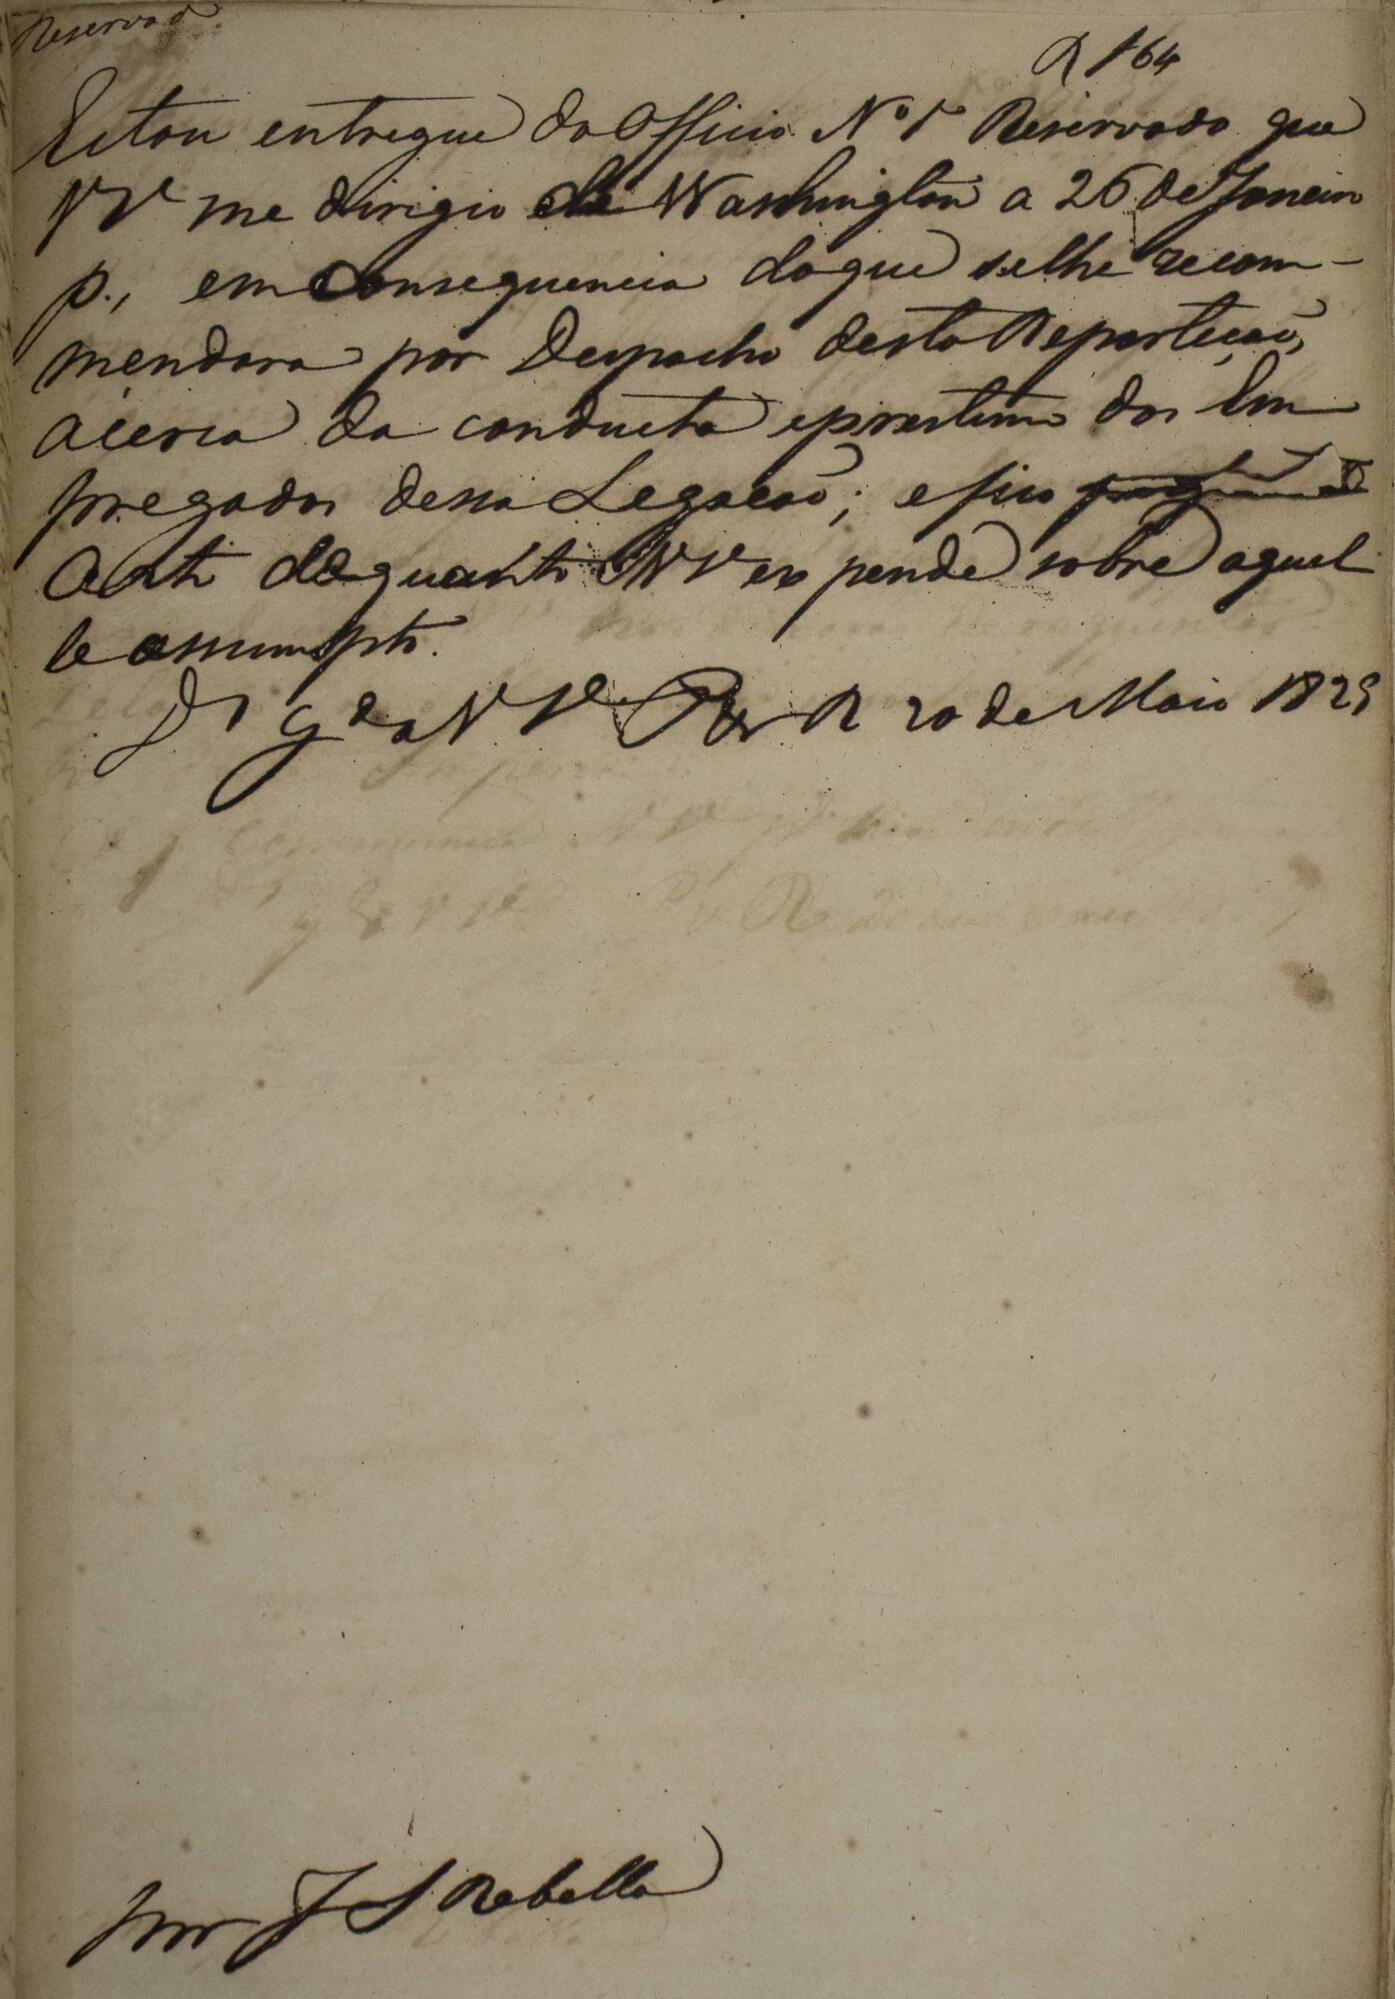 Reservado
R 164
Estou entregue do Officio Nº 1º Reservado que
V Sª me dirigio de Washington a 26 de Janeiro
p., em consequencia do que se lhe recom-
mendara por Despacho desta Repartição,
ácerca da conducta e prestimo dos Em
pregados dessa Legação; e fico
de quanto V Sª expende sobre aquel
le assumpto.
Ds Gde a V Sª Paço 20 de Maio 1825
Snr J S Rebello